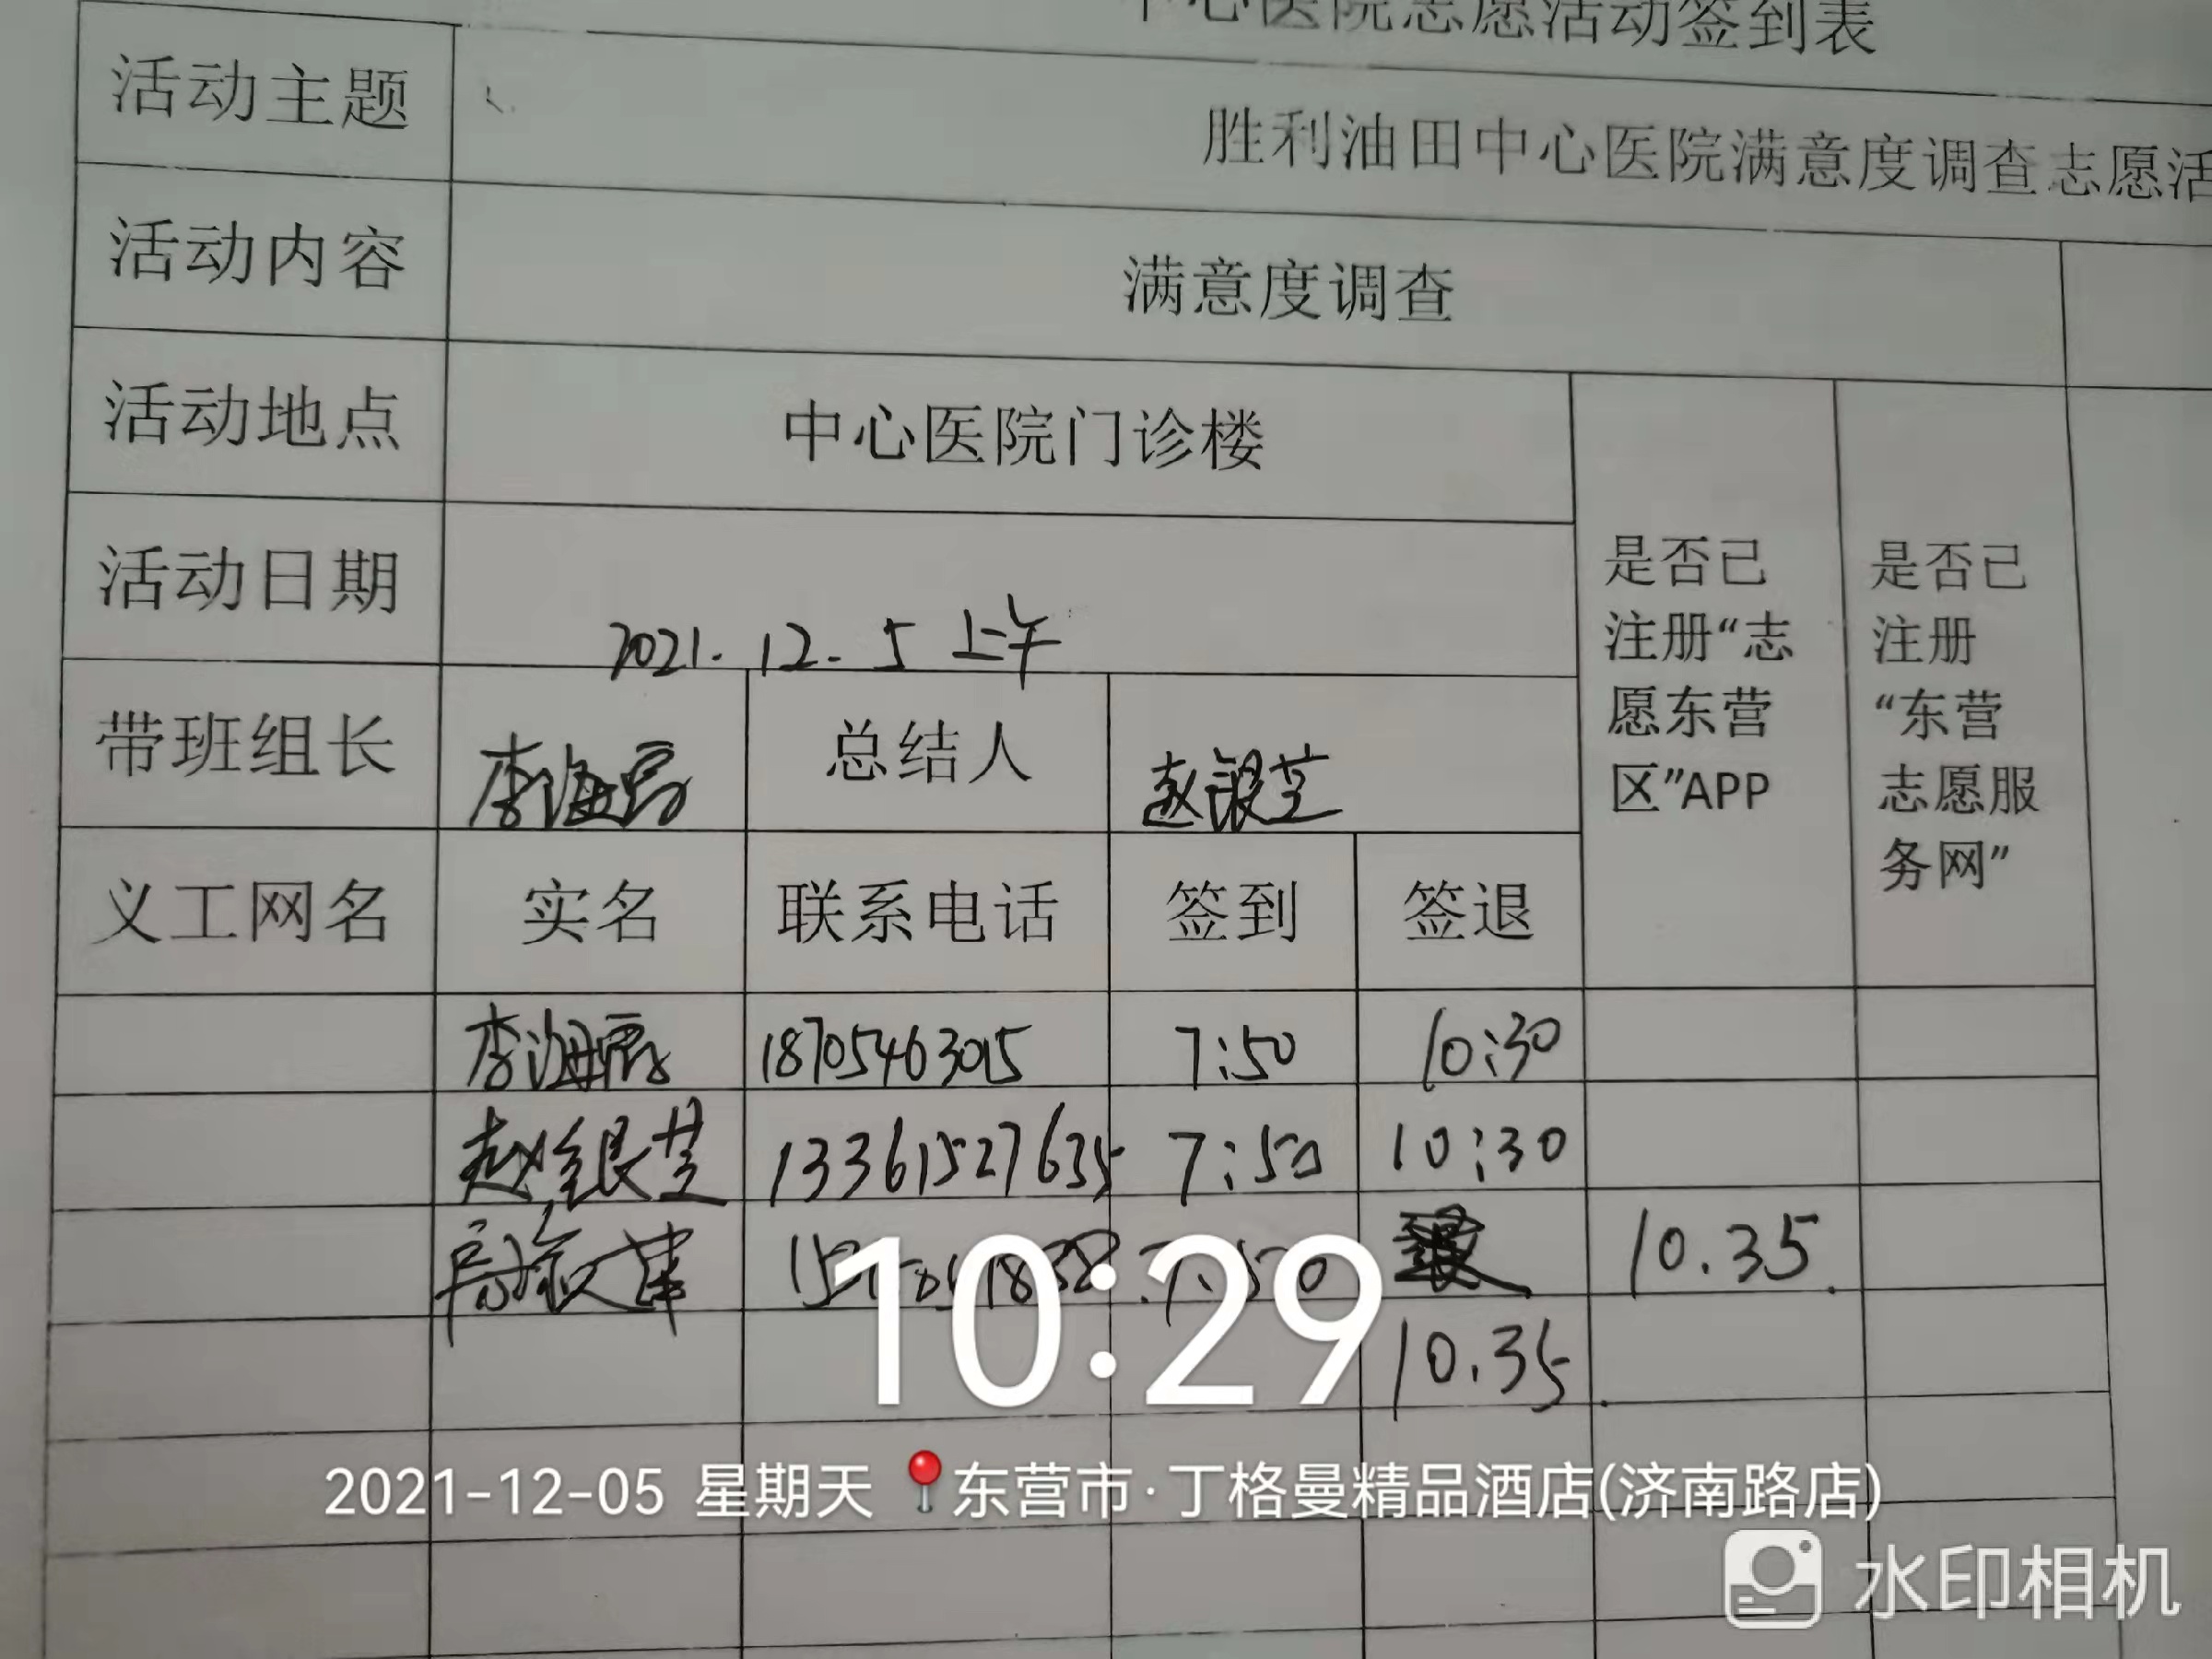 中心医院志愿活动签到表
活动主题 胜利油田中心医院满意度调查志愿活
活动内容 满意度调查
活动地点 中心医院门诊楼
活动日期 2021.12.5上午
是否已注册“志愿东营区”APP
是否已注册“东营志愿服务网”
带班组长 李海霞 总结人 赵银芝
义工网名 实名 联系电话 签到 签退
李海霞 18705463015 7:50 10:30
赵银芝 13361527635 7:50 10:30
10.35
10.35
10:29
2021-12-05 星期天 东营市·丁格曼精品酒店(济南路店)
水印相机